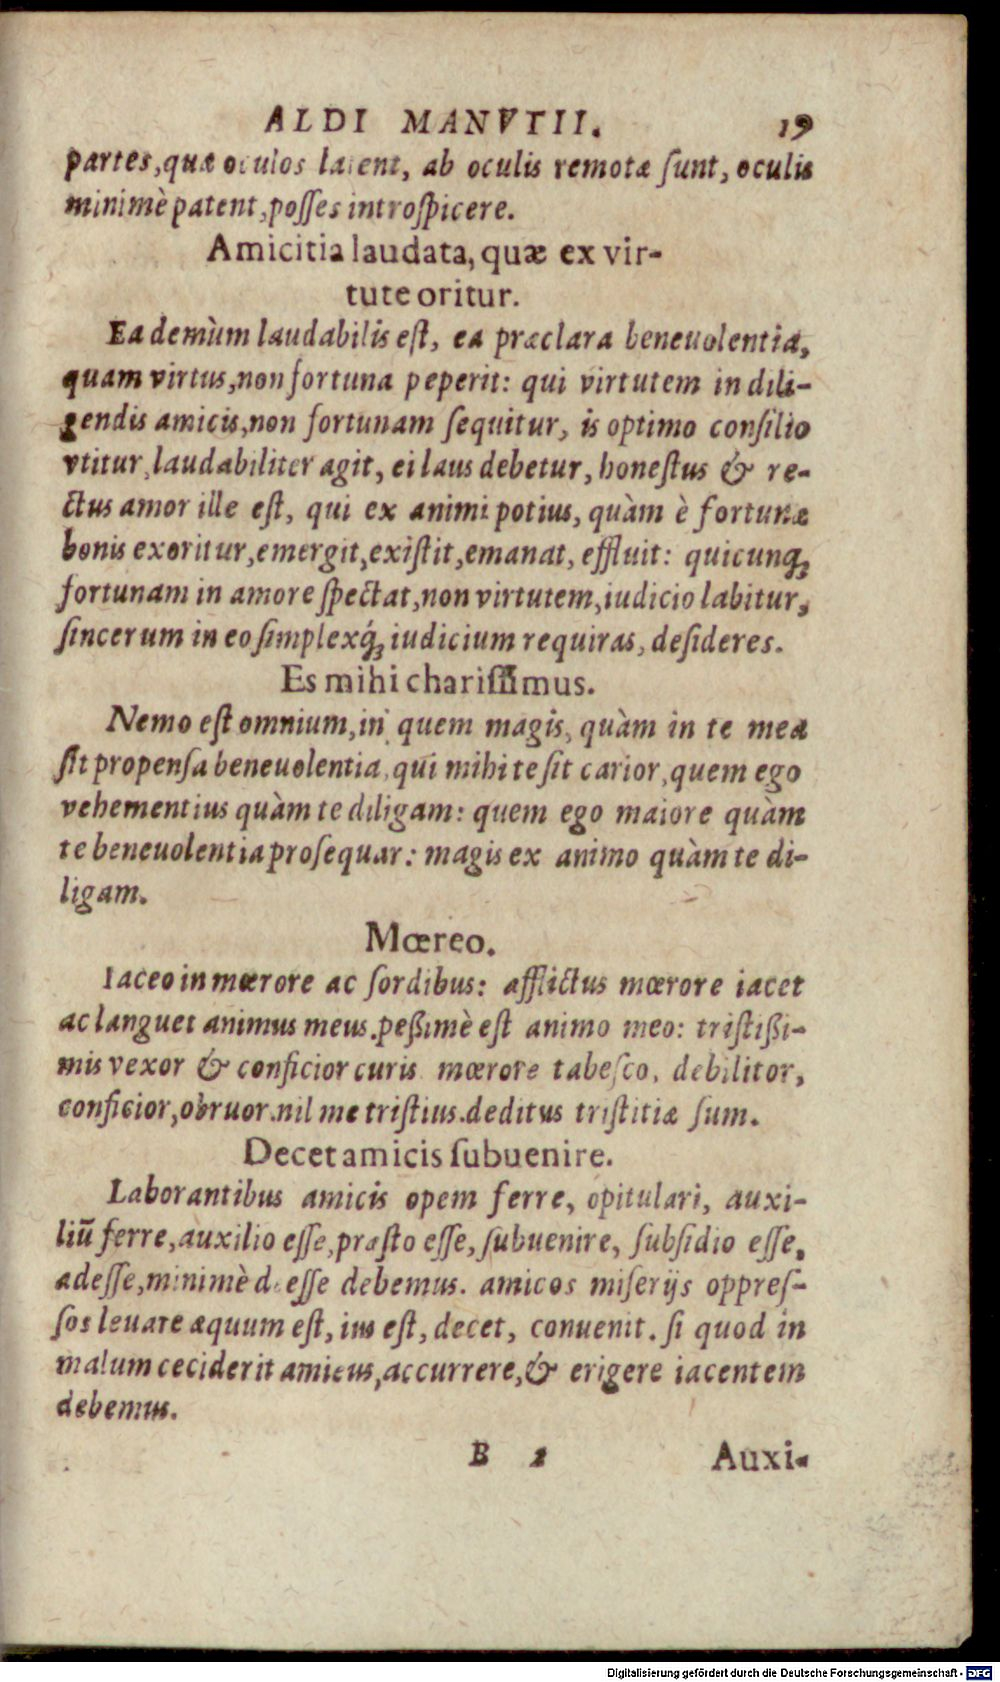 ALDI MANVTII. 19
partes, quæ oculos latent, ab oculis remotæ ſunt, oculis
minimè patent, poſſes introſpicere.
Amicitia laudata, quæ ex vir-
tute oritur.
Ea demùm laudabilis eſt, ea præclara beneuolentia,
quam virtus, non fortuna peperit: qui virtutem in dili-
gendis amicis, non fortunam ſequitur, is optimo conſilio
vtitur, laudabiliter agit, ei laus debetur, honeſtus & re-
ctus amor ille eſt, qui ex animi potius, quàm è fortunæ
bonis exoritur, emergit, exiſtit, emanat, effluit: quicunq́;
fortunam in amore ſpectat, non virtutem, iudicio labitur,
ſincerum in eo ſimplexq́; iudicium requiras, deſideres.
Es mihi chariſſimus.
Nemo eſt omnium, in quem magis, quàm in te mea
ſit propenſa beneuolentia, qui mihi te ſit carior, quem ego
vehementius quàm te diligam: quem ego maiore quàm
te beneuolentia proſequar: magis ex animo quàm te di-
ligam.
Mœreo.
Iaceo in mœrore ac ſordibus: afflictus mœrore iacet
ac languet animus meus. peßimè eſt animo meo: triſtißi-
mis vexor & conficior curis mœrore tabeſco, debilitor,
conficior, obruor. nil me triſtius. deditus triſtitiæ ſum.
Decet amicis ſubuenire.
Laborantibus amicis opem ferre, opitulari, auxi-
liū ferre, auxilio eſſe, præſto eſſe, ſubuenire, ſubſidio eſſe,
adeſſe, minimè deeſſe debemus. amicos miſerijs oppreſ-
ſos leuare æquum eſt, ius eſt, decet, conuenit. ſi quod in
malum ceciderit amicus, accurrere, & erigere iacentem
debemus.
B 2 Auxi-
Digitalisierung gefördert durch die Deutsche Forschungsgemeinschaft - DFG